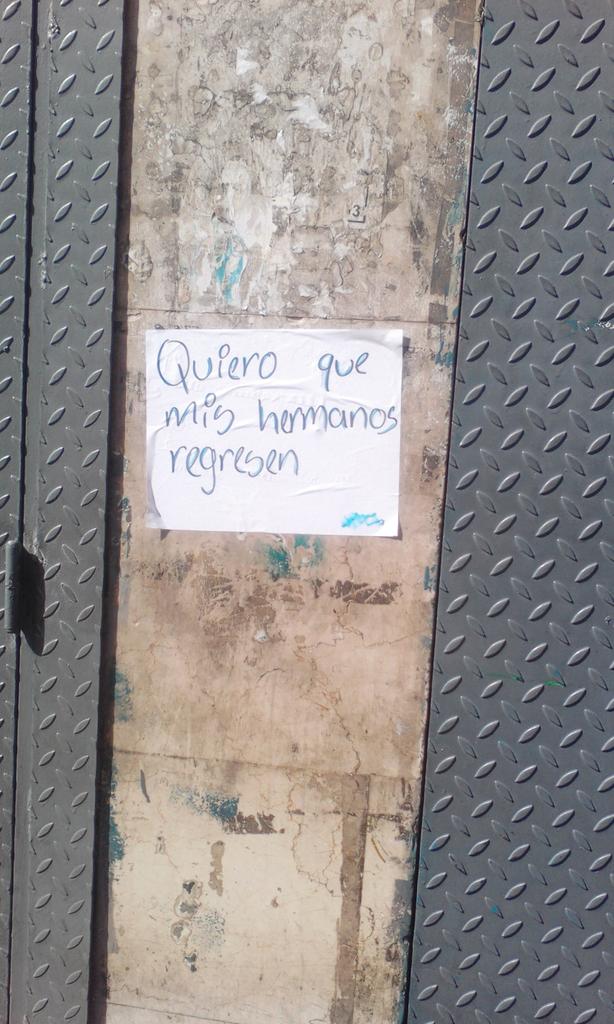 3
Quiero que
mis hermanos
regresen